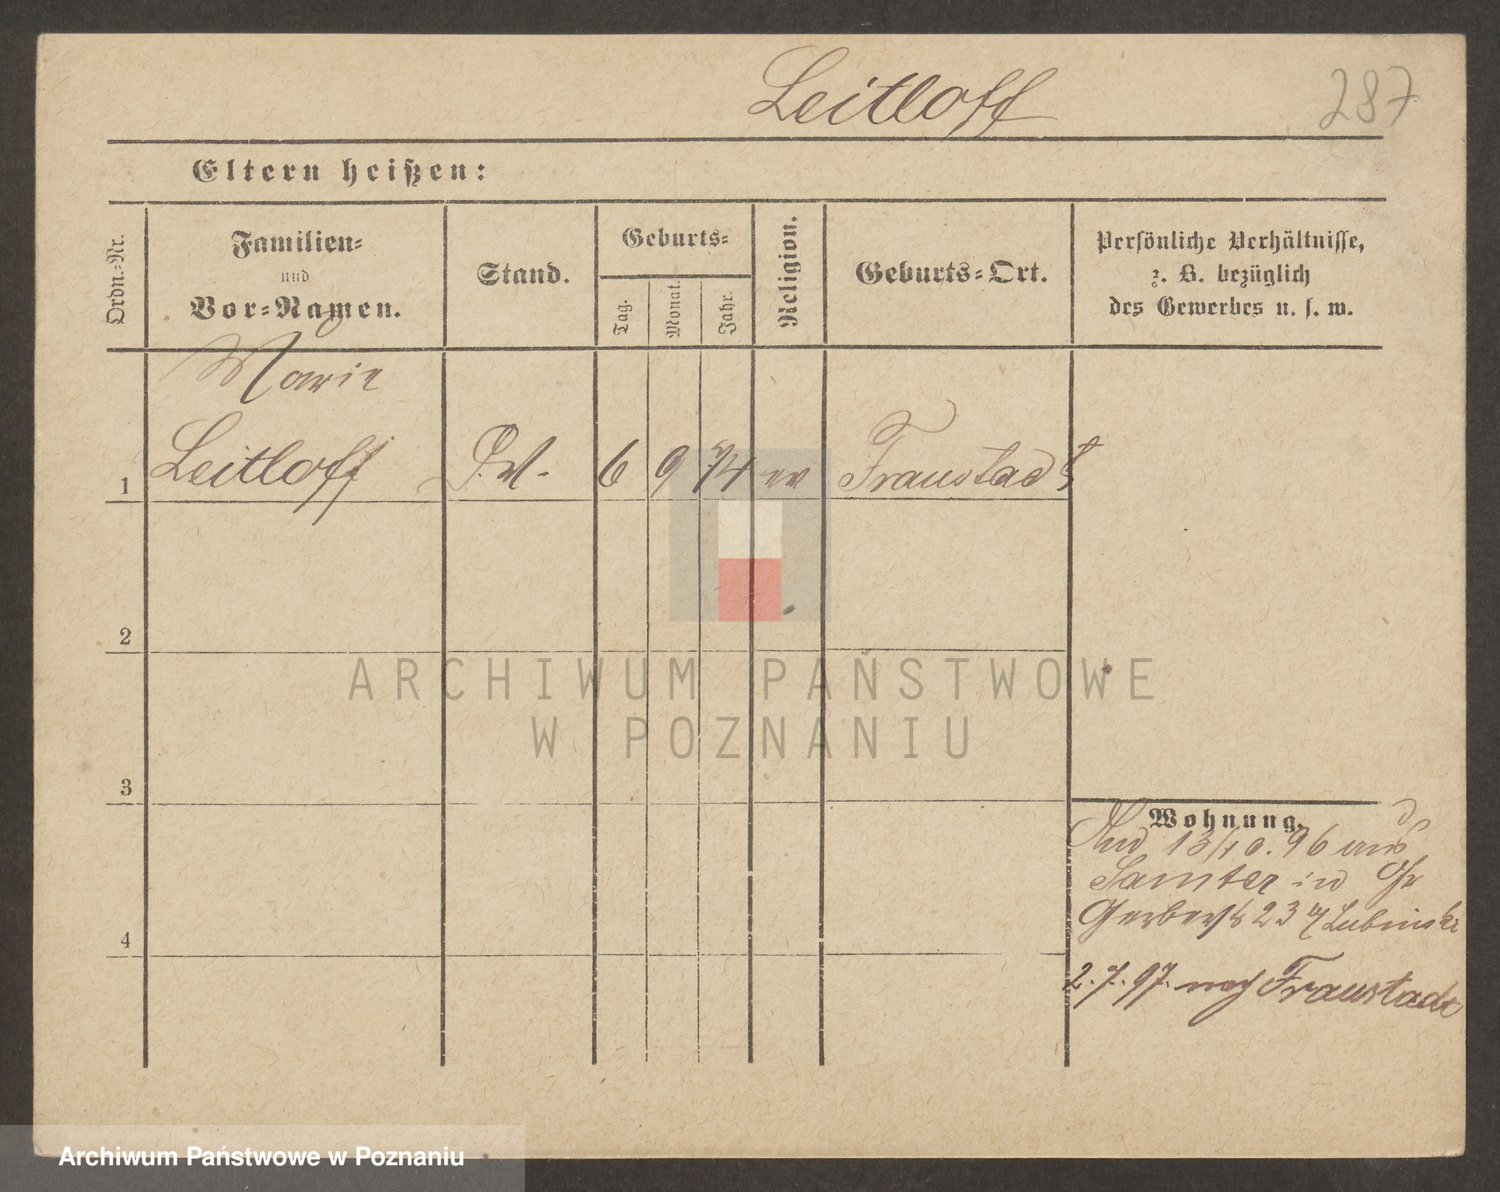 Leitloff
287
Eltern heißen:
Ordn.-Nr.
Familien-
und
Vor-Namen.
Stand.
Geburts-
Tag.
Monat.
Jahr.
Religion.
Geburts-Ort.
Persönliche Verhältnisse,
z. B. bezüglich
des Gewerbes u. s. w.
Marie
1 Leitloff 6 9 74 ev Fraustadt
2
3
4
Wohnung.
13/10. 96 aus
Samter in Gr
Gerberst 23 Lubinski
2.7.97. nach Fraustadt
ARCHIWUM PAŃSTWOWE
W POZNANIU
Archiwum Państwowe w Poznaniu